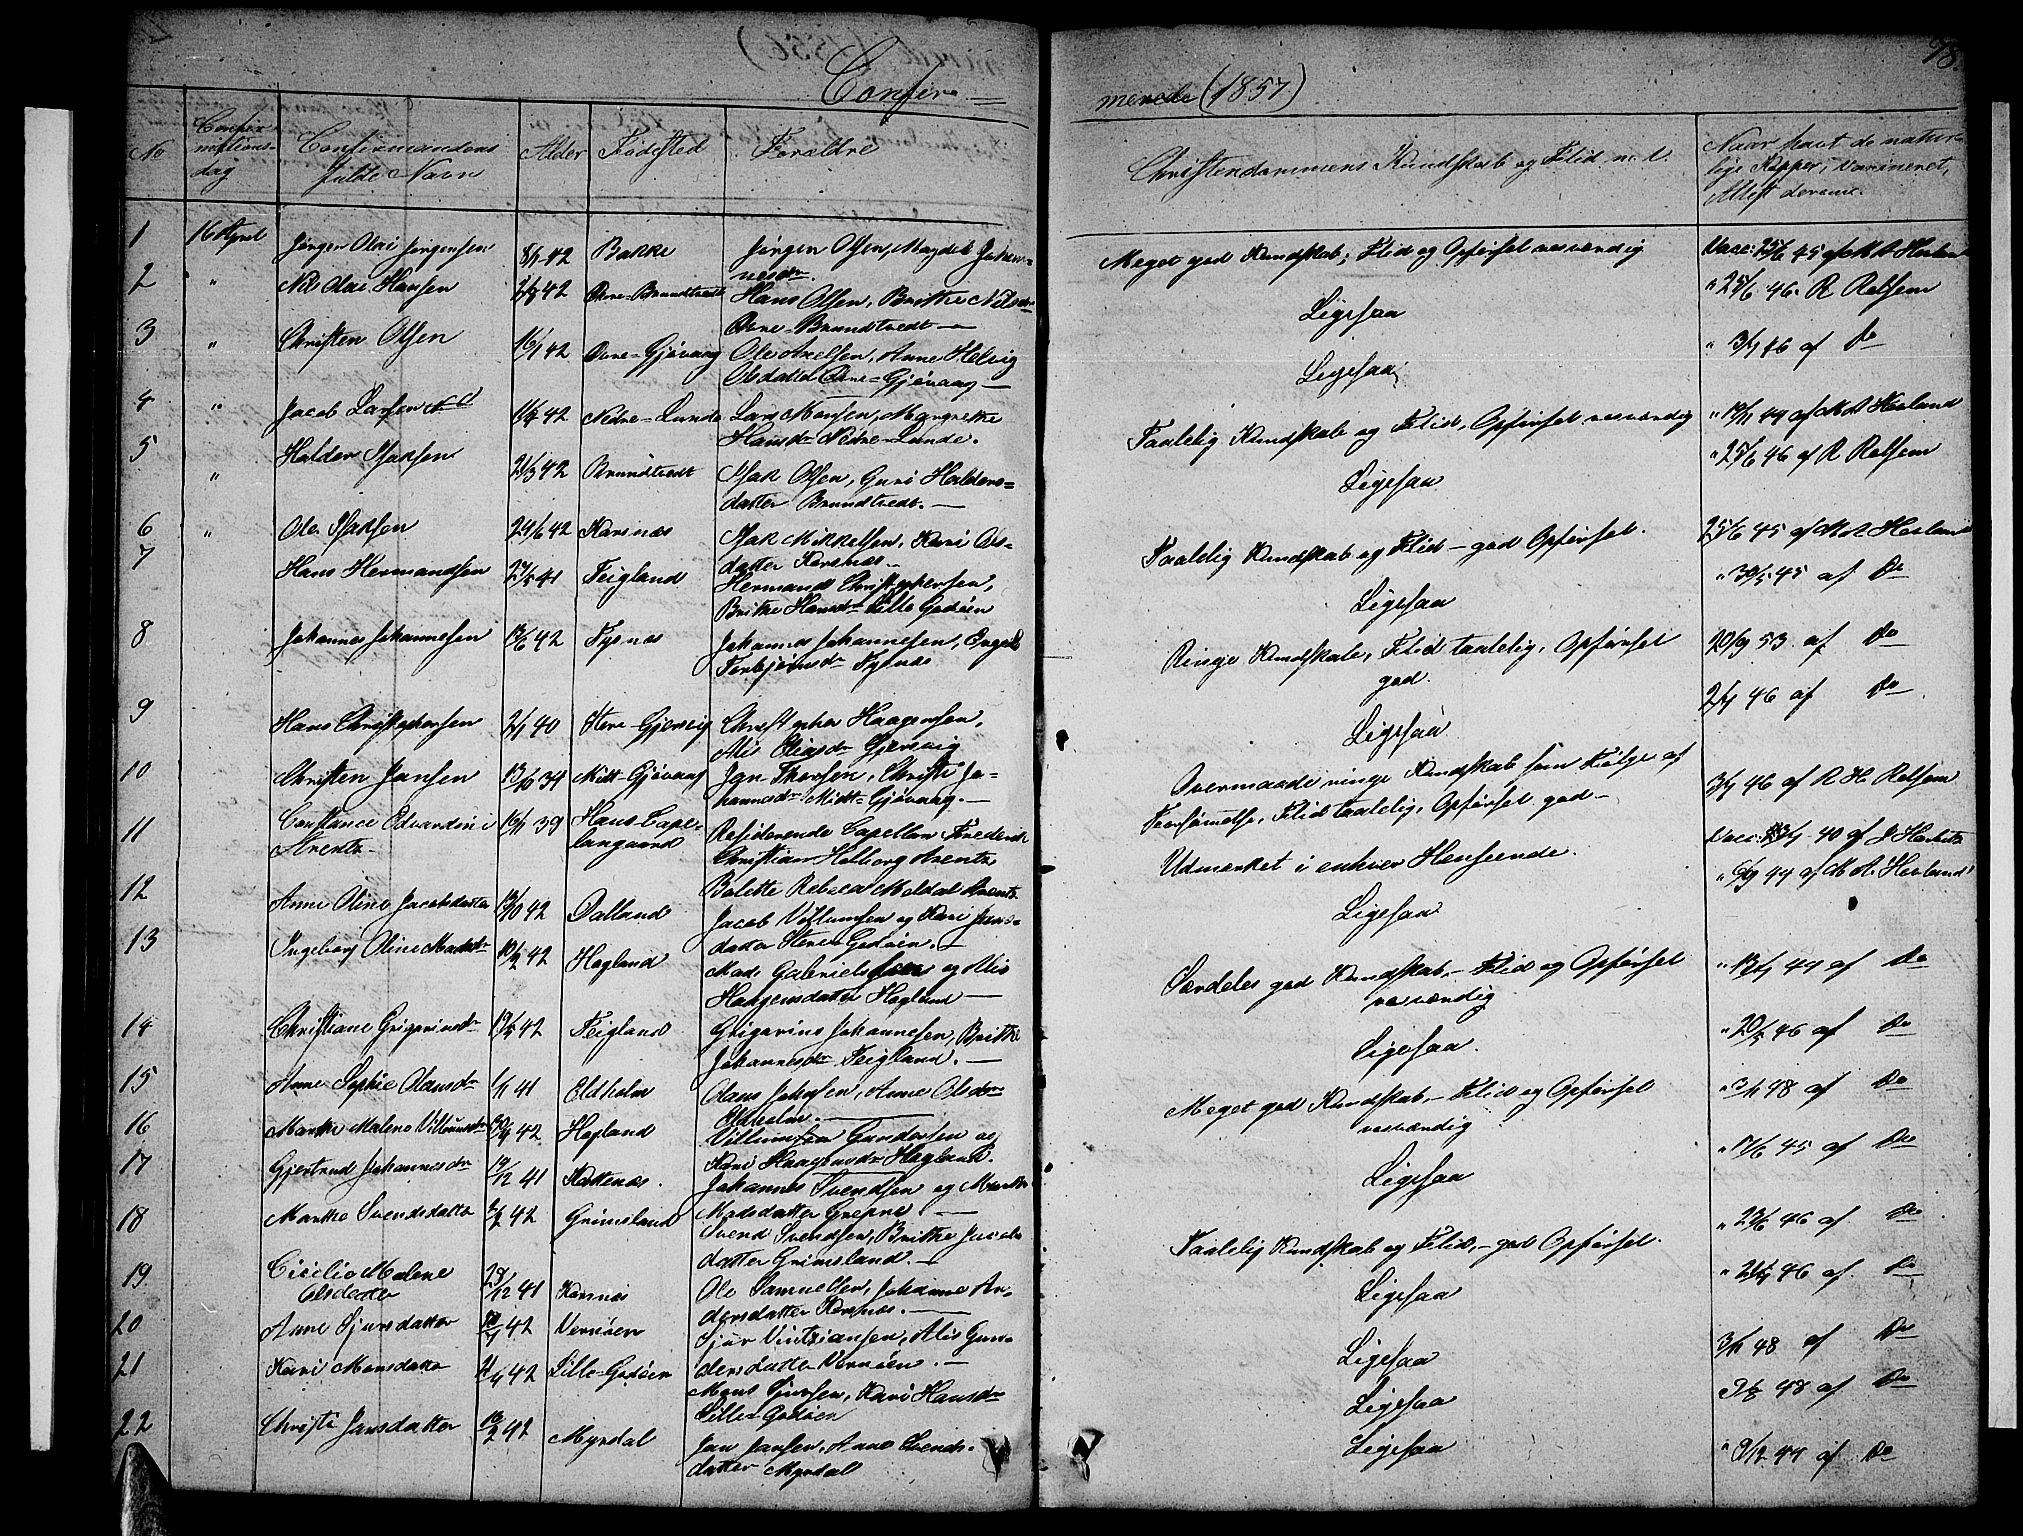 78.
Confir=
merede (1857)
No
Confir
mations-
dag
Confirmandens
fulde Navn
Alder
Fødested
Forældre
Christendommens Kundskab og Flid m. v.
Naar havt de natur-
lige Kopper, vaxineret,
Attest derom.
1 16 April Jørgen Olai Jørgensen 8/1 42 Bakke Jørgen Olsen, Magdel Johan-
nesdr
Meget god Kundskab, Flid og Opførsel rosværdig
Vacc: 25/6 45 af M A Hesland
2 " Nils Olai Hansen 42 Øvre-Brundtvedt Hans Olsen, Brithe Nilsdr
Øvre-Brundtvedt —
Ligesaa
" 25/6 46. R Rolfsem
3 " Christen Olsen 16/1 42 Øvre-Gjøvaag Ole Axelsen, Anne Helvig
Olsdatter Øvre-Gjøvaag —
Ligesaa
" 3/7 46 af Do
4 " Jacob Larsen 42 Nedre-Lunde Lars Monsen, Margrethe
Hansdr Nedre-Lunde.
Taalelig Kundskab og Flid, Opførsel rosværdig
49 af M A Hesland
5 " Haldor Isaksen 21/3 42 Brundtvedt Isak Olsen, Guri Haldors=
datter Brundtvedt. —
Ligesaa
" 25/6 46 af R Rolfsem
6 " Ole Isaksen 24/6 42 Korsnæs Isak Mikkelsen, Kari Ols-
datter Korsnæs —
Taalelig Kundskab og Flid — god Opførsel.
25/6 45 af M A Hesland
7 Hans Hermandsen 27/5 41 Teigland Hermand Christophersen,
Brithe Hansdr Lille Godøen
Ligesaa
" 30/5 45 af Do
8 Johannes Johannesen 13/6 42 Tysnæs Johannes Johannesen, Engel
Torbjørnsdr Tysnæs
Ringe Kundskab, Flid taalelig, Opførsel
god.
20/9 53. af Do
9 Hans Christophersen 40 Store-Gjersvig Christopher Haagensen,
Alis Eliasdr Gjersvig
Ligesaa
2/7 46 af Do
10 Christen Jansen 13/10 34 Midt-Gjøvaag Jan Thorsen, Christi Jo-
hannesdr Midt-Gjøvaag. —
Overmaade ringe Kundskab som Følge af
Forsømmelse, Flid taalelig, Opførsel god —
3/7 46 af R H Rolfsem
11 Constance Edvardine
Arentz — 16/1 39 Hans Capel-
langaard Residerende Capellan Frederik
Christian Holberg Arentz
Bolette Rebecca Moldal Arentz
Udmærket i enhver Henseende.
40 af J Herbitz
12 Anne Oline Jacobsdatter 42 Dalland Jacob Villumsen og Kari Jans-
datter Store Godøen. —
Ligesaa
44 af M A Hesland
13 Ingeborg Oline Madsdr 10/2 42 Hogland Mads Gabrielsen og Alis
Haagensdatter Hogland —
Særdeles god Kundskab, — Flid og Opførsel
rosværdig
44 af Do
14 Christiane Grigoriusdr 42 Teigland Grigorius Johannesen, Brithe
Johannesdr Teigland. —
Ligesaa.
" 20/5 46 af Do
15 Anne Sophie Olausdr 41 Eldholm Olaus Jakobsen, Anne Olsdr
Eldholm. —
Meget god Kundskab, — Flid og Opførsel
rosværdig
48 af Do
16 Marthe Malene Villumsdr 42 Hogland Villumsen Gundersen og
Kari Haagensdr Hogland.
Ligesaa
" 17/6 45 af Do
17 Gjertrud Johannesdr 19/12 41 Kattenæs. Johannes Svendsen og Marthe
Madsdatter Grepne —
18 Marthe Svendsdatter 2/2 42 Grimsland Svend Svendsen, Brithe Jacobs
datter Grimsland. —
Taalelig Kundskab og Flid, — god Opførsel.
" 23/6 46 af Do
19 Cicilie Malene
Olsdatter 28/12 41 Korsnæs Ole Samuelsen, Johanne An-
dersdatter Korsnæs. —
Ligesaa
46 af Do
20 Anne Sjursdatter 42 Vernøen Sjur Vintziansen, Alis Gun-
dersdatter Vernøen. —
Ligesaa
3/11 48 af Do
21 Kari Monsdatter 42 Lille-Godøen Mons Sjursen, Kari Hansdr
Lille-Godøen
Ligesaa
48 af Do
22 Christi Jansdatter 42 Myrdal Jan Jansen, Anne Svends-
datter Myrdal
Ligesaa
" 9/12 44 af Do